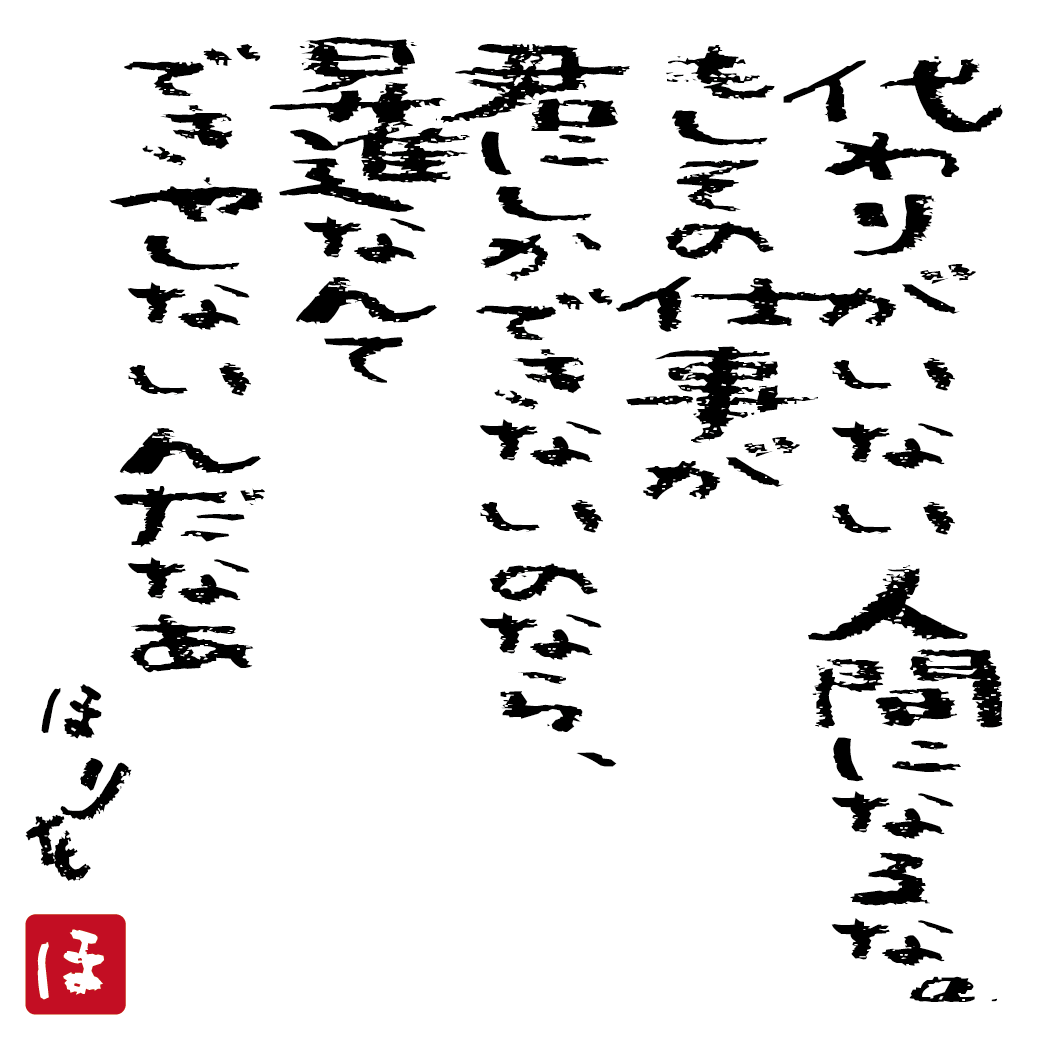 代わりがいない人間になるな。
もしその仕事が
君にしかできないのなら、
昇進なんて
できやしないんだなあ
ほりを
ほ